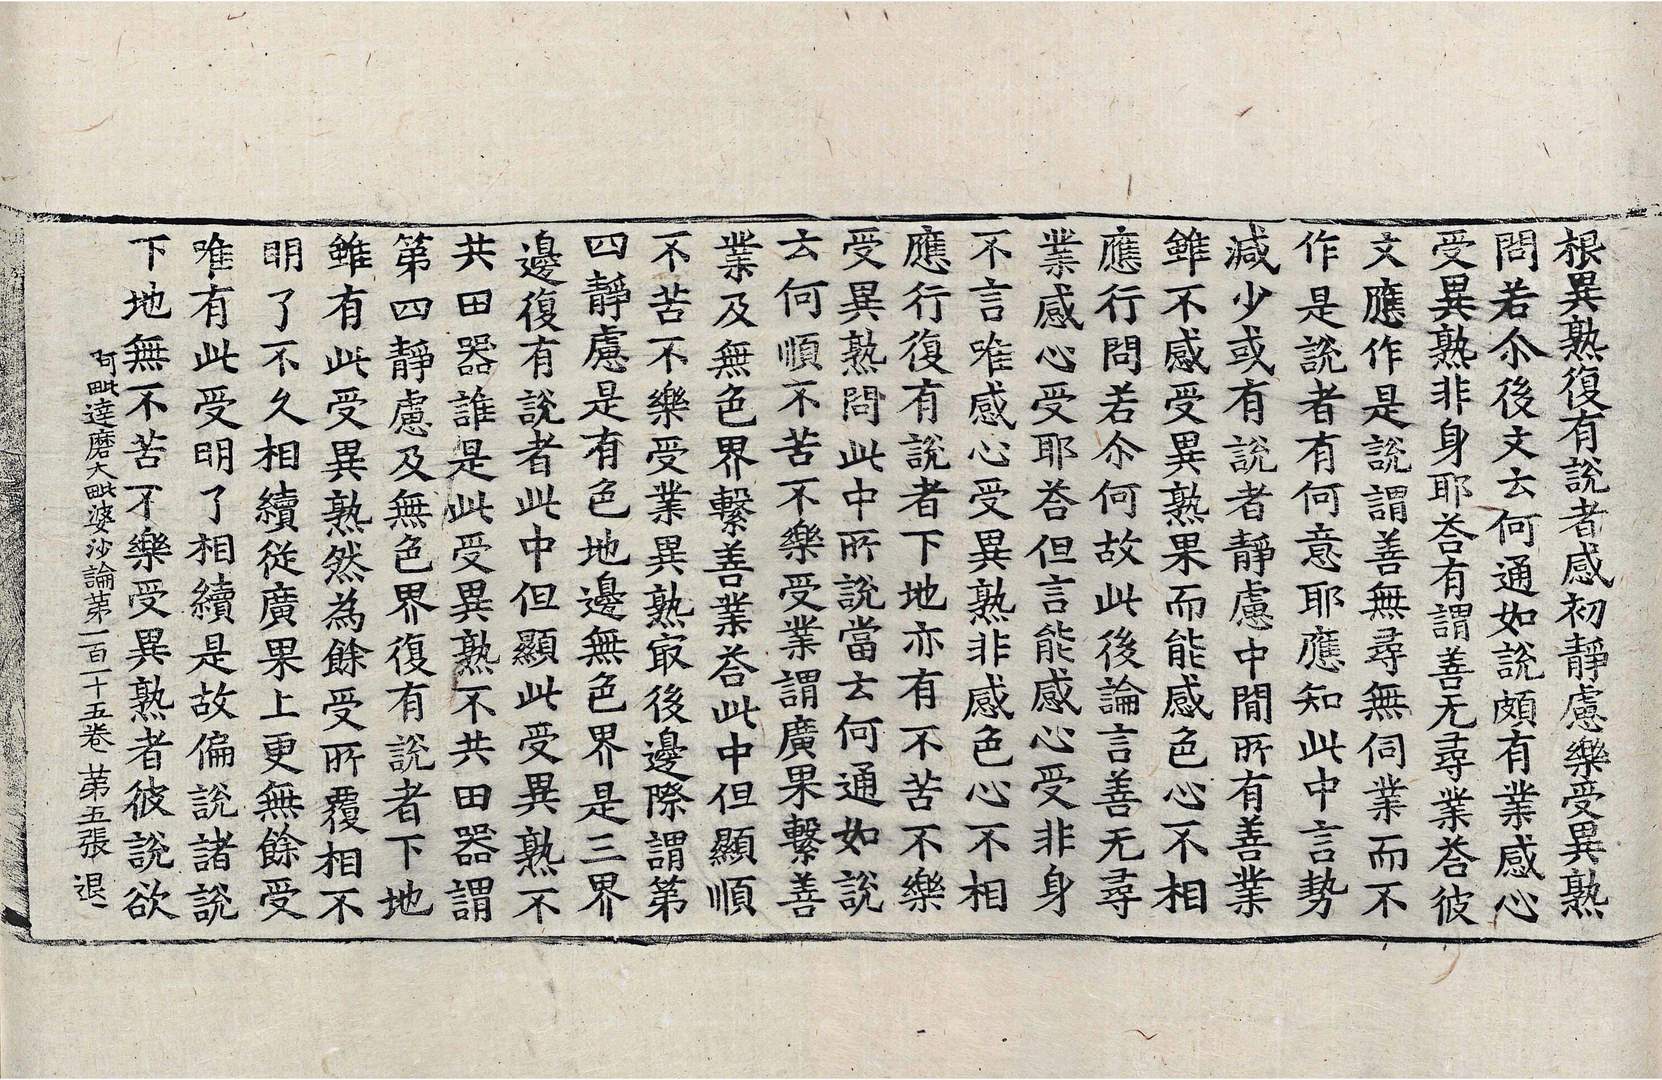 根異熟復有說者感初靜慮樂受異熟
問若尒後文云何通如說頗有業感心
受異熟非身耶荅有謂善无尋業荅彼
文應作是說謂善無尋無伺業而不
作是說者有何意耶應知此中言勢
減少或有說者靜慮中閒所有善業
雖不感受異熟果而能感色心不相
應行問若尒何故此後論言善无尋
業感心受耶荅但言能感心受非身
不言唯感心受異熟非感色心不相
應行復有說者下地亦有不苦不樂
受異熟問此中所說當云何通如說
云何順不苦不樂受業謂廣果繫善
業及無色界繫善業荅此中但顯順
不苦不樂受業異熟㝡後邊際謂第
四靜慮是有色地邊無色界是三界
邊復有說者此中但顯此受異熟不
共田器誰是此受異熟不共田器謂
第四靜慮及無色界復有說者下地
雖有此受異熟然為餘受所覆相不
明了不久相續從廣果上更無餘受
唯有此受明了相續是故偏說諸說
下地無不苦不樂受異熟者彼說欲
阿毗達磨大毗婆沙論第一百一十五卷 第五張 退